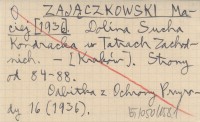 ZAJĄCZKOWSKI Ma-
ciej [1936]. Dolina Sucha
Kondracka w Tatrach Zachod-
nich. - [Kraków]. Strony
od 84-88.
Odbitka z Ochrony Przyro-
dy 16 (1936).